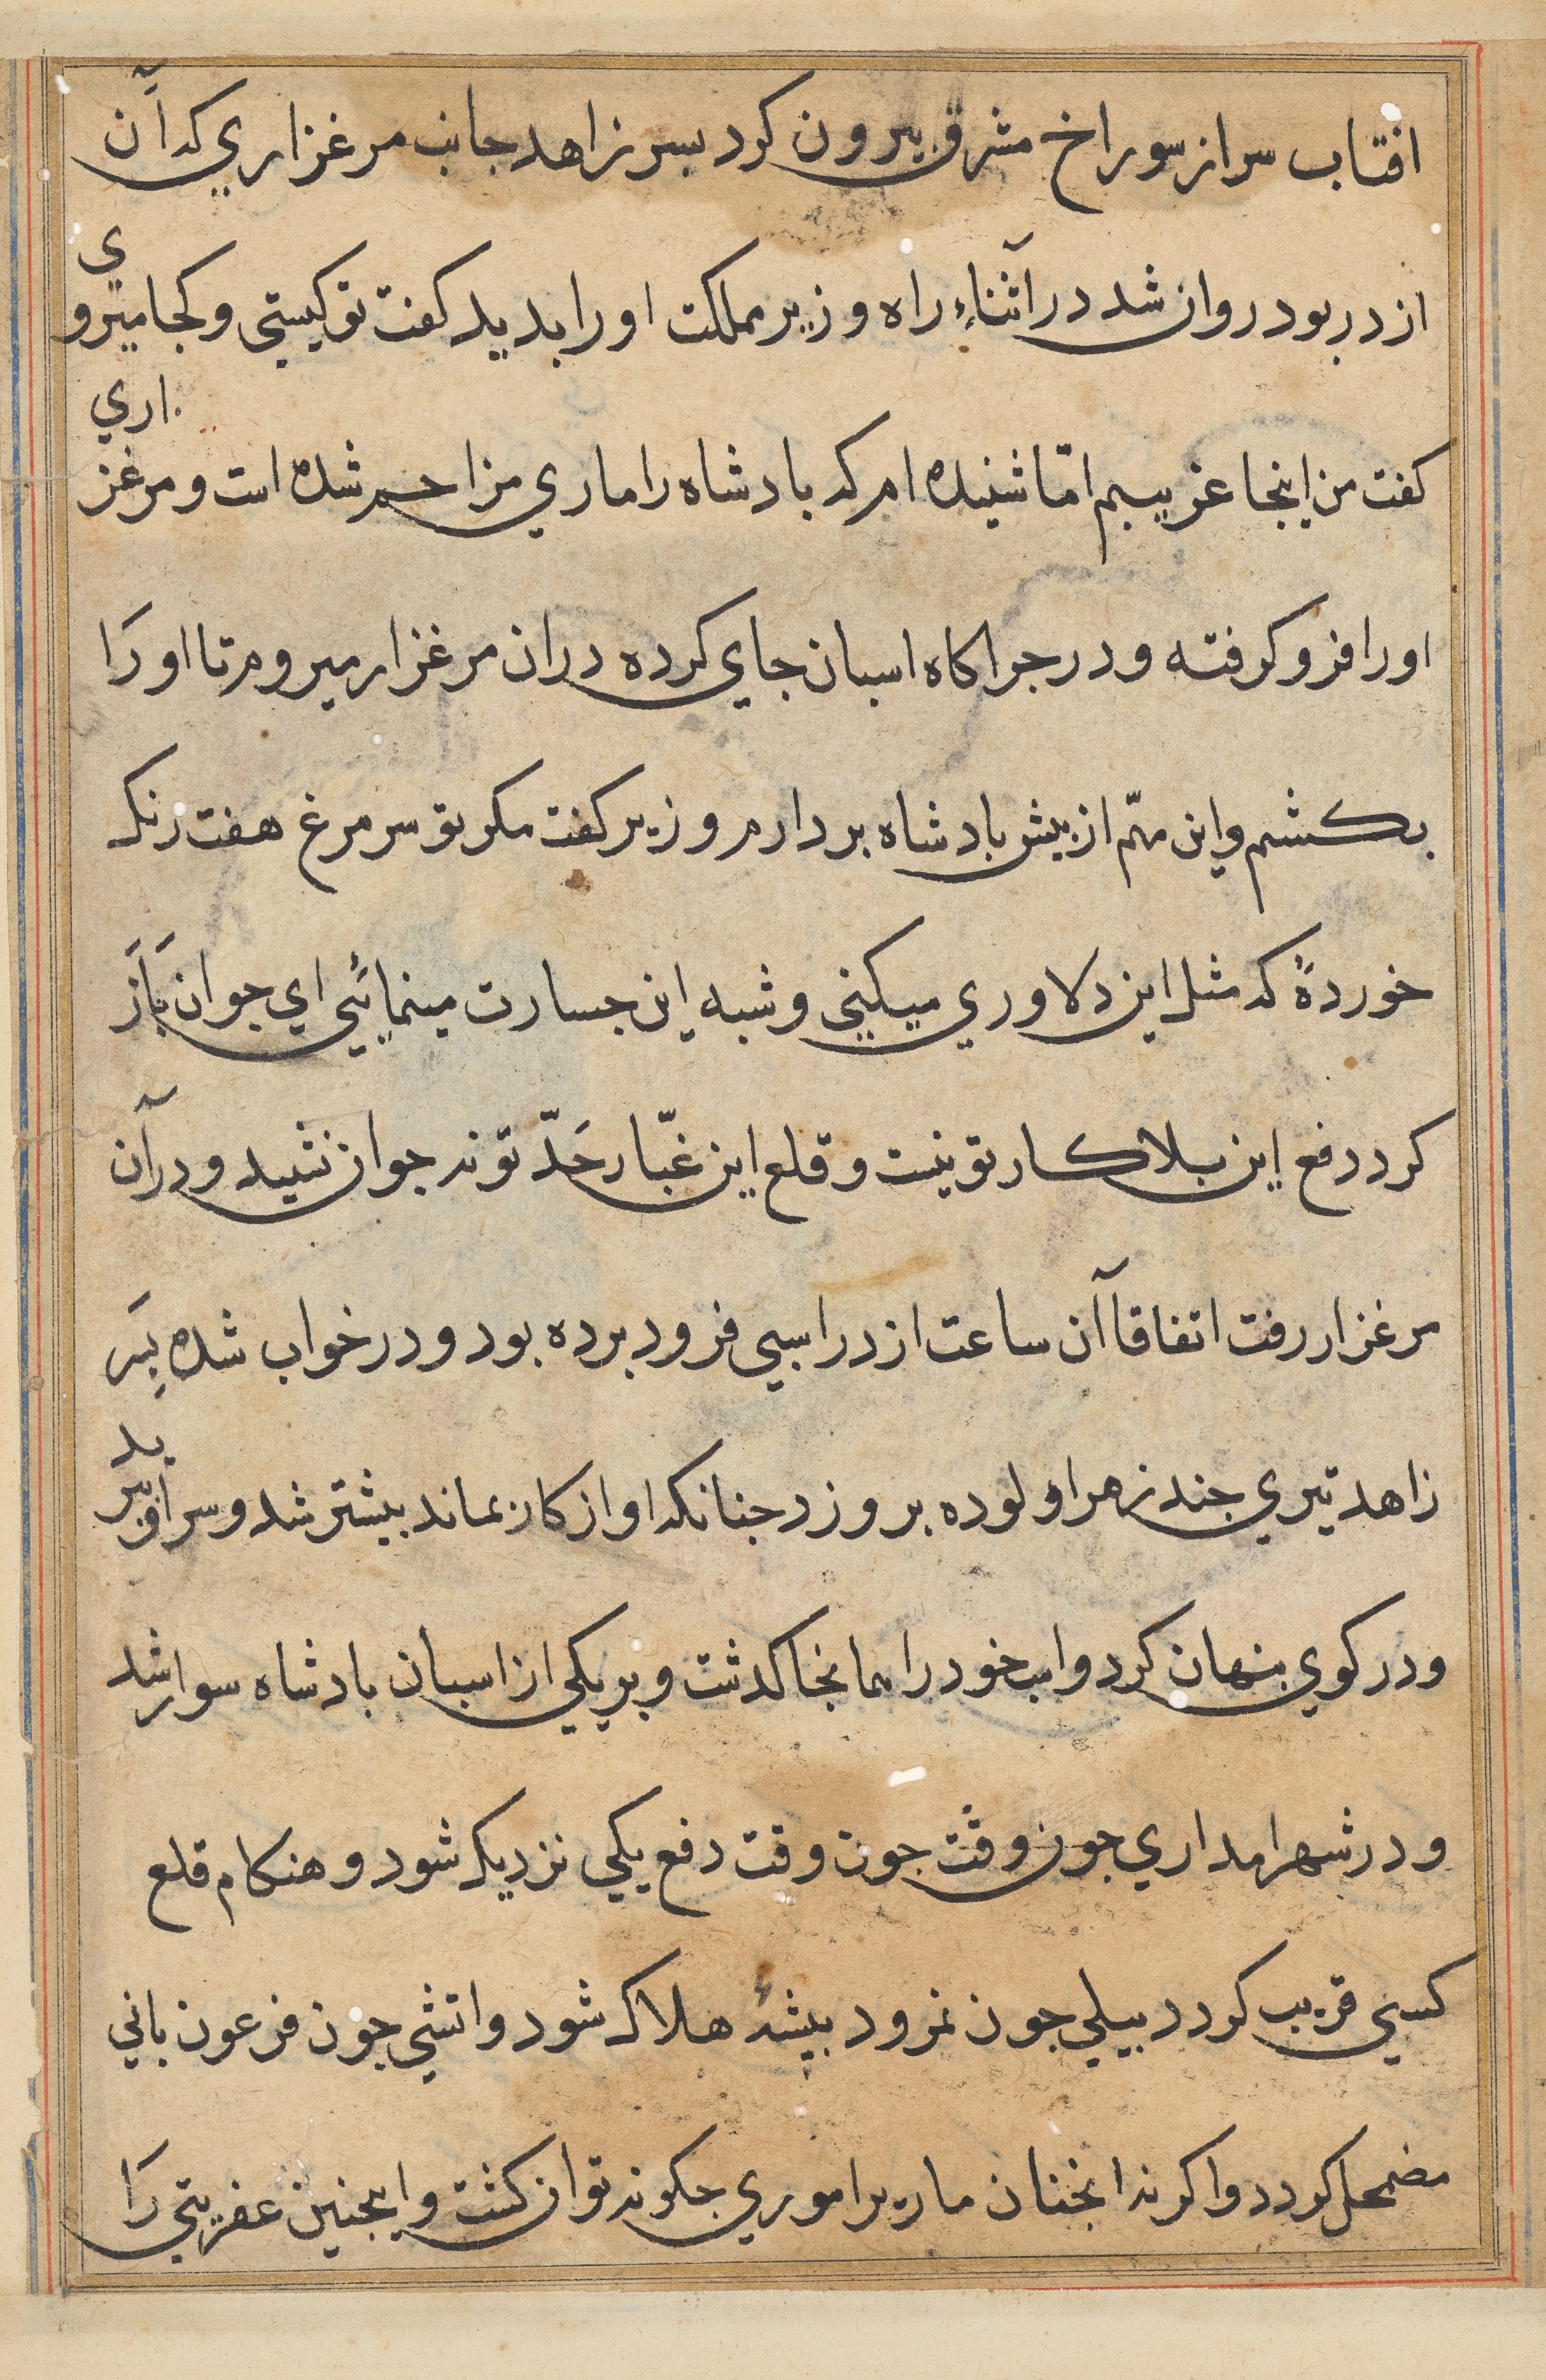 افتاب سر از سوراخ مشرق بیرون کرد بسر زاهد جانب مرغزاری که آن
ازدر بود روان شد در آثناء راه وزیر مملکت او را بدید کفت تو کیستی و کجا میروی
کفت من اینجا غریبم امّا شنیده ام که بادشاه را ماری مزاحم شده است و مرغزاری
او را فرو کرفته و در جراکاه اسبان جای کرده در ان مرغزار میروم تا او را
بکشم و این مهمّ از بیش بادشاه بردارم وزیر کفت مکر تو سر مرغ هفت رنک
خوردهٔ که مثل این دلاوری میکنی و شبه این جسارت مینمائی ای جوان باز
کرد دفع این بلا کار تو نیست و قلع این غبّار حَدّ تو نه جوان نشنید و در آن
مرغزار رفت اتفاقا آن ساعت ازدر اسبی فرود برده بود و در خواب شده بسر
زاهد تیری جند زهر اولوده بر وزد جنانکه او از کار بماند بیشتر شد و سر او ببرید
و در کوی بنهان کرد و اسب خود را همانجا کذشت و بر یکی از اسبان بادشاه سوار شد
و در شهر امد اری جون وقت جون وقت دفع یکی نزدیک شود و هنکام قلع
کسی قریب کردد بیلی جون نمرود ببشهٔ هلاک شود و اتشی جون فرعون بانی
مضمحل کردد و اکر نه انجنان مار برا موری جکونه توان کشت و اینجنین عفریتی را